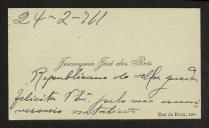 24-2-911
Jeronymo José dos Reis
Republicano da velha guarda
felicita V. Ex. pelo seu anni
versario natalicio
Rua da Rosa,